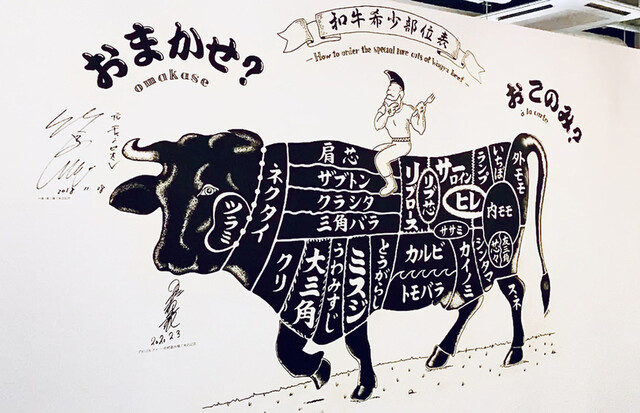 和牛希少部位表
How to order the special rare cuts of wagyu beef
おまかせ?
omakase
おこのみ?
à la carte
2018 11 18
ツラミ
ネクタイ
肩芯
ザブトン
クラシタ
三角バラ
リブロース
リブ芯
サーロイン
ヒレ
ランプ
いちぼ
外モモ
内モモ
ササミ
クリ
大三角
うわみすじ
ミスジ
とうがらし
カルビ
トモバラ
カイノミ
シンタマ
スネ